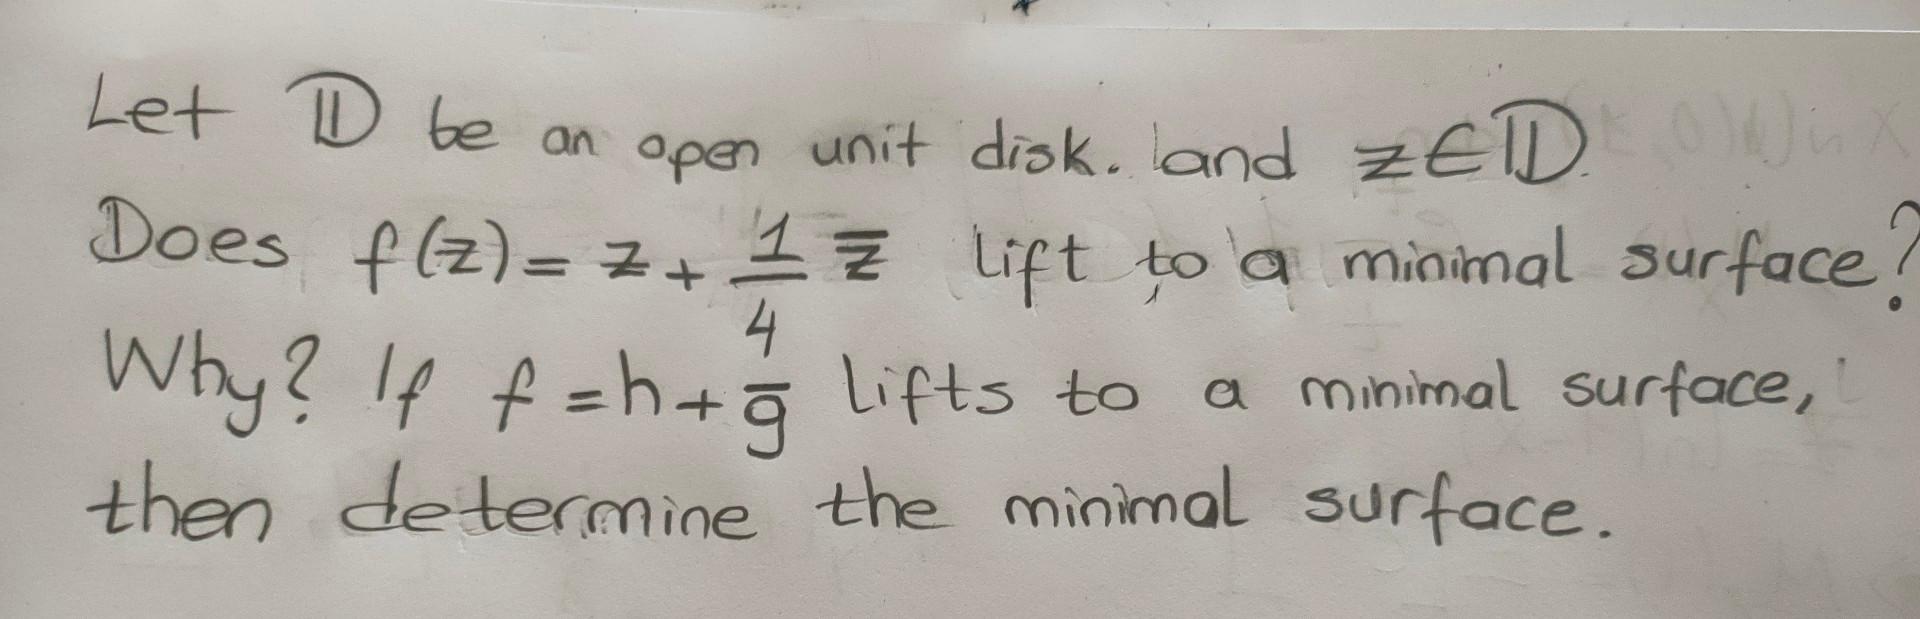 Let 𝔻 be an open unit disk. and z∈𝔻.
Does f(z) = z + 1/4 z̅ lift to a minimal surface?
Why? If f = h + g̅ lifts to a minimal surface,
then determine the minimal surface.